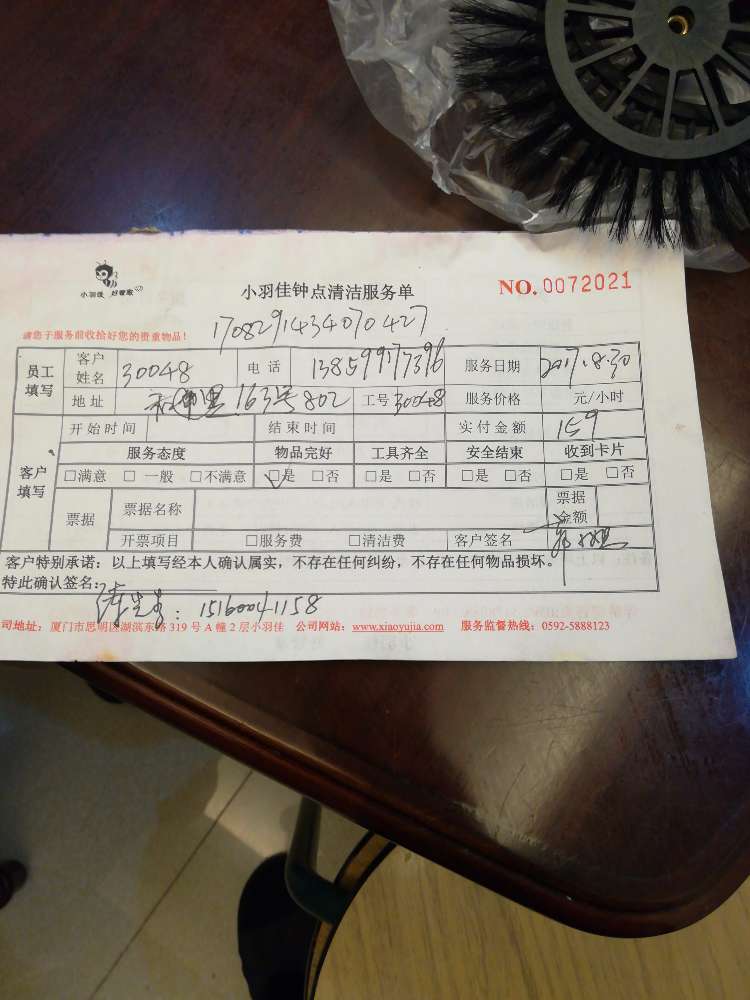 小羽佳 好管家
小羽佳钟点清洁服务单 NO. 0072021
170829143407042​7
请您于服务前收拾好您的贵重物品！
员工填写 客户姓名 30048 电话 13859917396 服务日期 2017.8.30
地址 163号802 工号 30048 服务价格 元/小时
客户填写 开始时间 结束时间 实付金额 159
服务态度 物品完好 工具齐全 安全结束 收到卡片
□满意 □一般 □不满意 □是 □否 □是 □否 □是 □否 □是 □否
票据 票据名称 票据金额
开票项目 □服务费 □清洁费 客户签名
客户特别承诺：以上填写经本人确认属实，不存在任何纠纷，不存在任何物品损坏。
特此确认签名:
先生：15160041158
司地址：厦门市思明区湖滨东路319号A幢2层小羽佳 公司网站：www.xiaoyujia.com 服务监督热线：0592-5888123